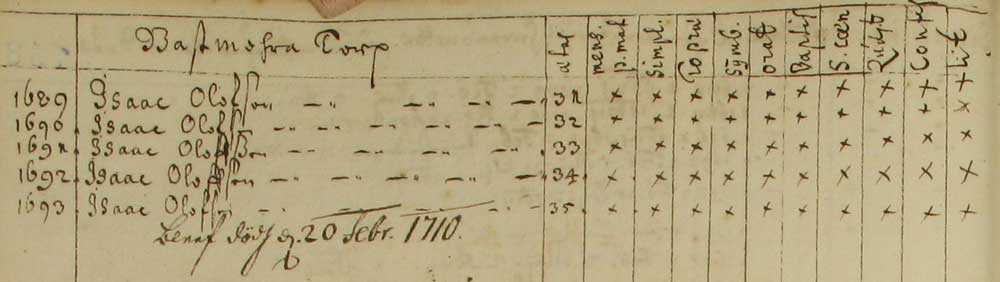 Bastmohra Torp ætas mens. p. mat simpl. propu symb. orat Baptis S. cœn Conf Lit
1689 Isaac Olofson 31 × × × × × × × × × × ×
1690 Isaac Olofson 32 × × × × × × × × × × ×
1691 Isaac Olofson 33 × × × × × × × × × × ×
1692 Isaac Olofson 34 × × × × × × × × × × ×
1693 Isaac Olofson 35 × × × × × × × × × × ×
dödh d. 20 Febr. 1710.